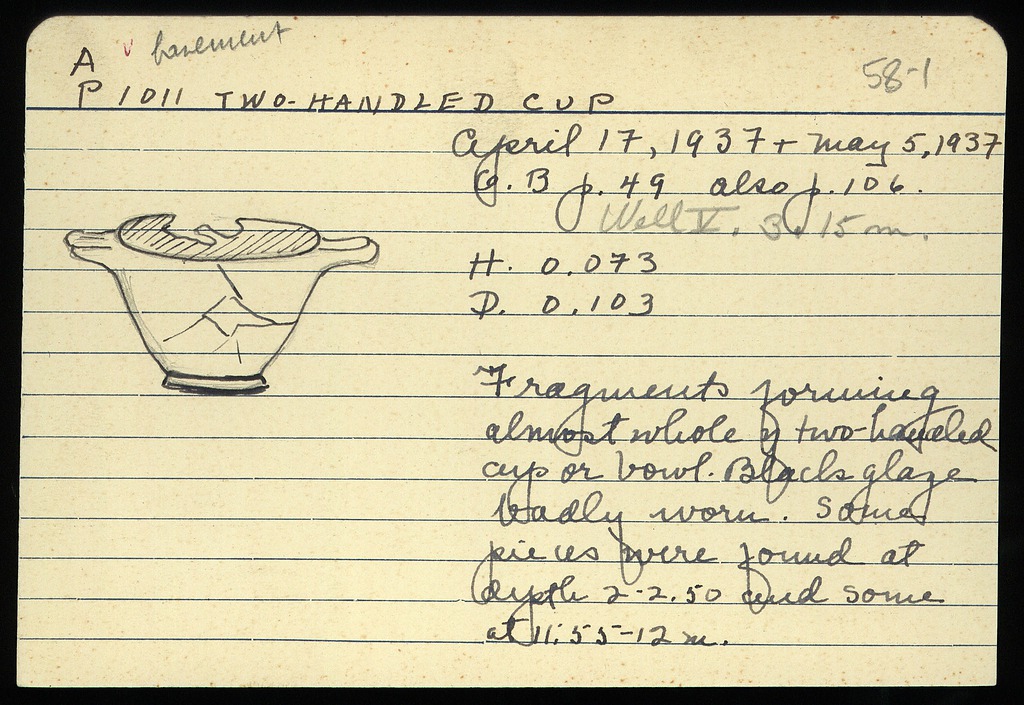 A v basement
58-1
P 1011 TWO-HANDLED CUP
April 17, 1937 + May 5, 1937
G. B p. 49 also p. 106.
Well V. 3.15 m.
H. 0.073
D. 0.103
Fragments forming
almost whole of two-handled
cup or bowl. Black glaze
badly worn. Some
pieces were found at
depth 2-2.50 and some
at 11.55-12 m.